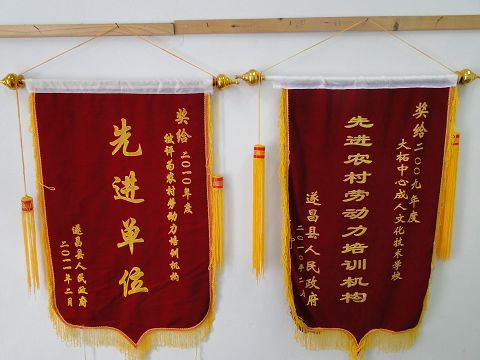 奖给二〇一〇年度
被评为农村劳动力培训机构
先进单位
遂昌县人民政府
二〇一一年二月
奖给二〇〇九年度
大柘中心成人文化技术学校
先进农村劳动力培训机构
遂昌县人民政府
二〇一〇年二月